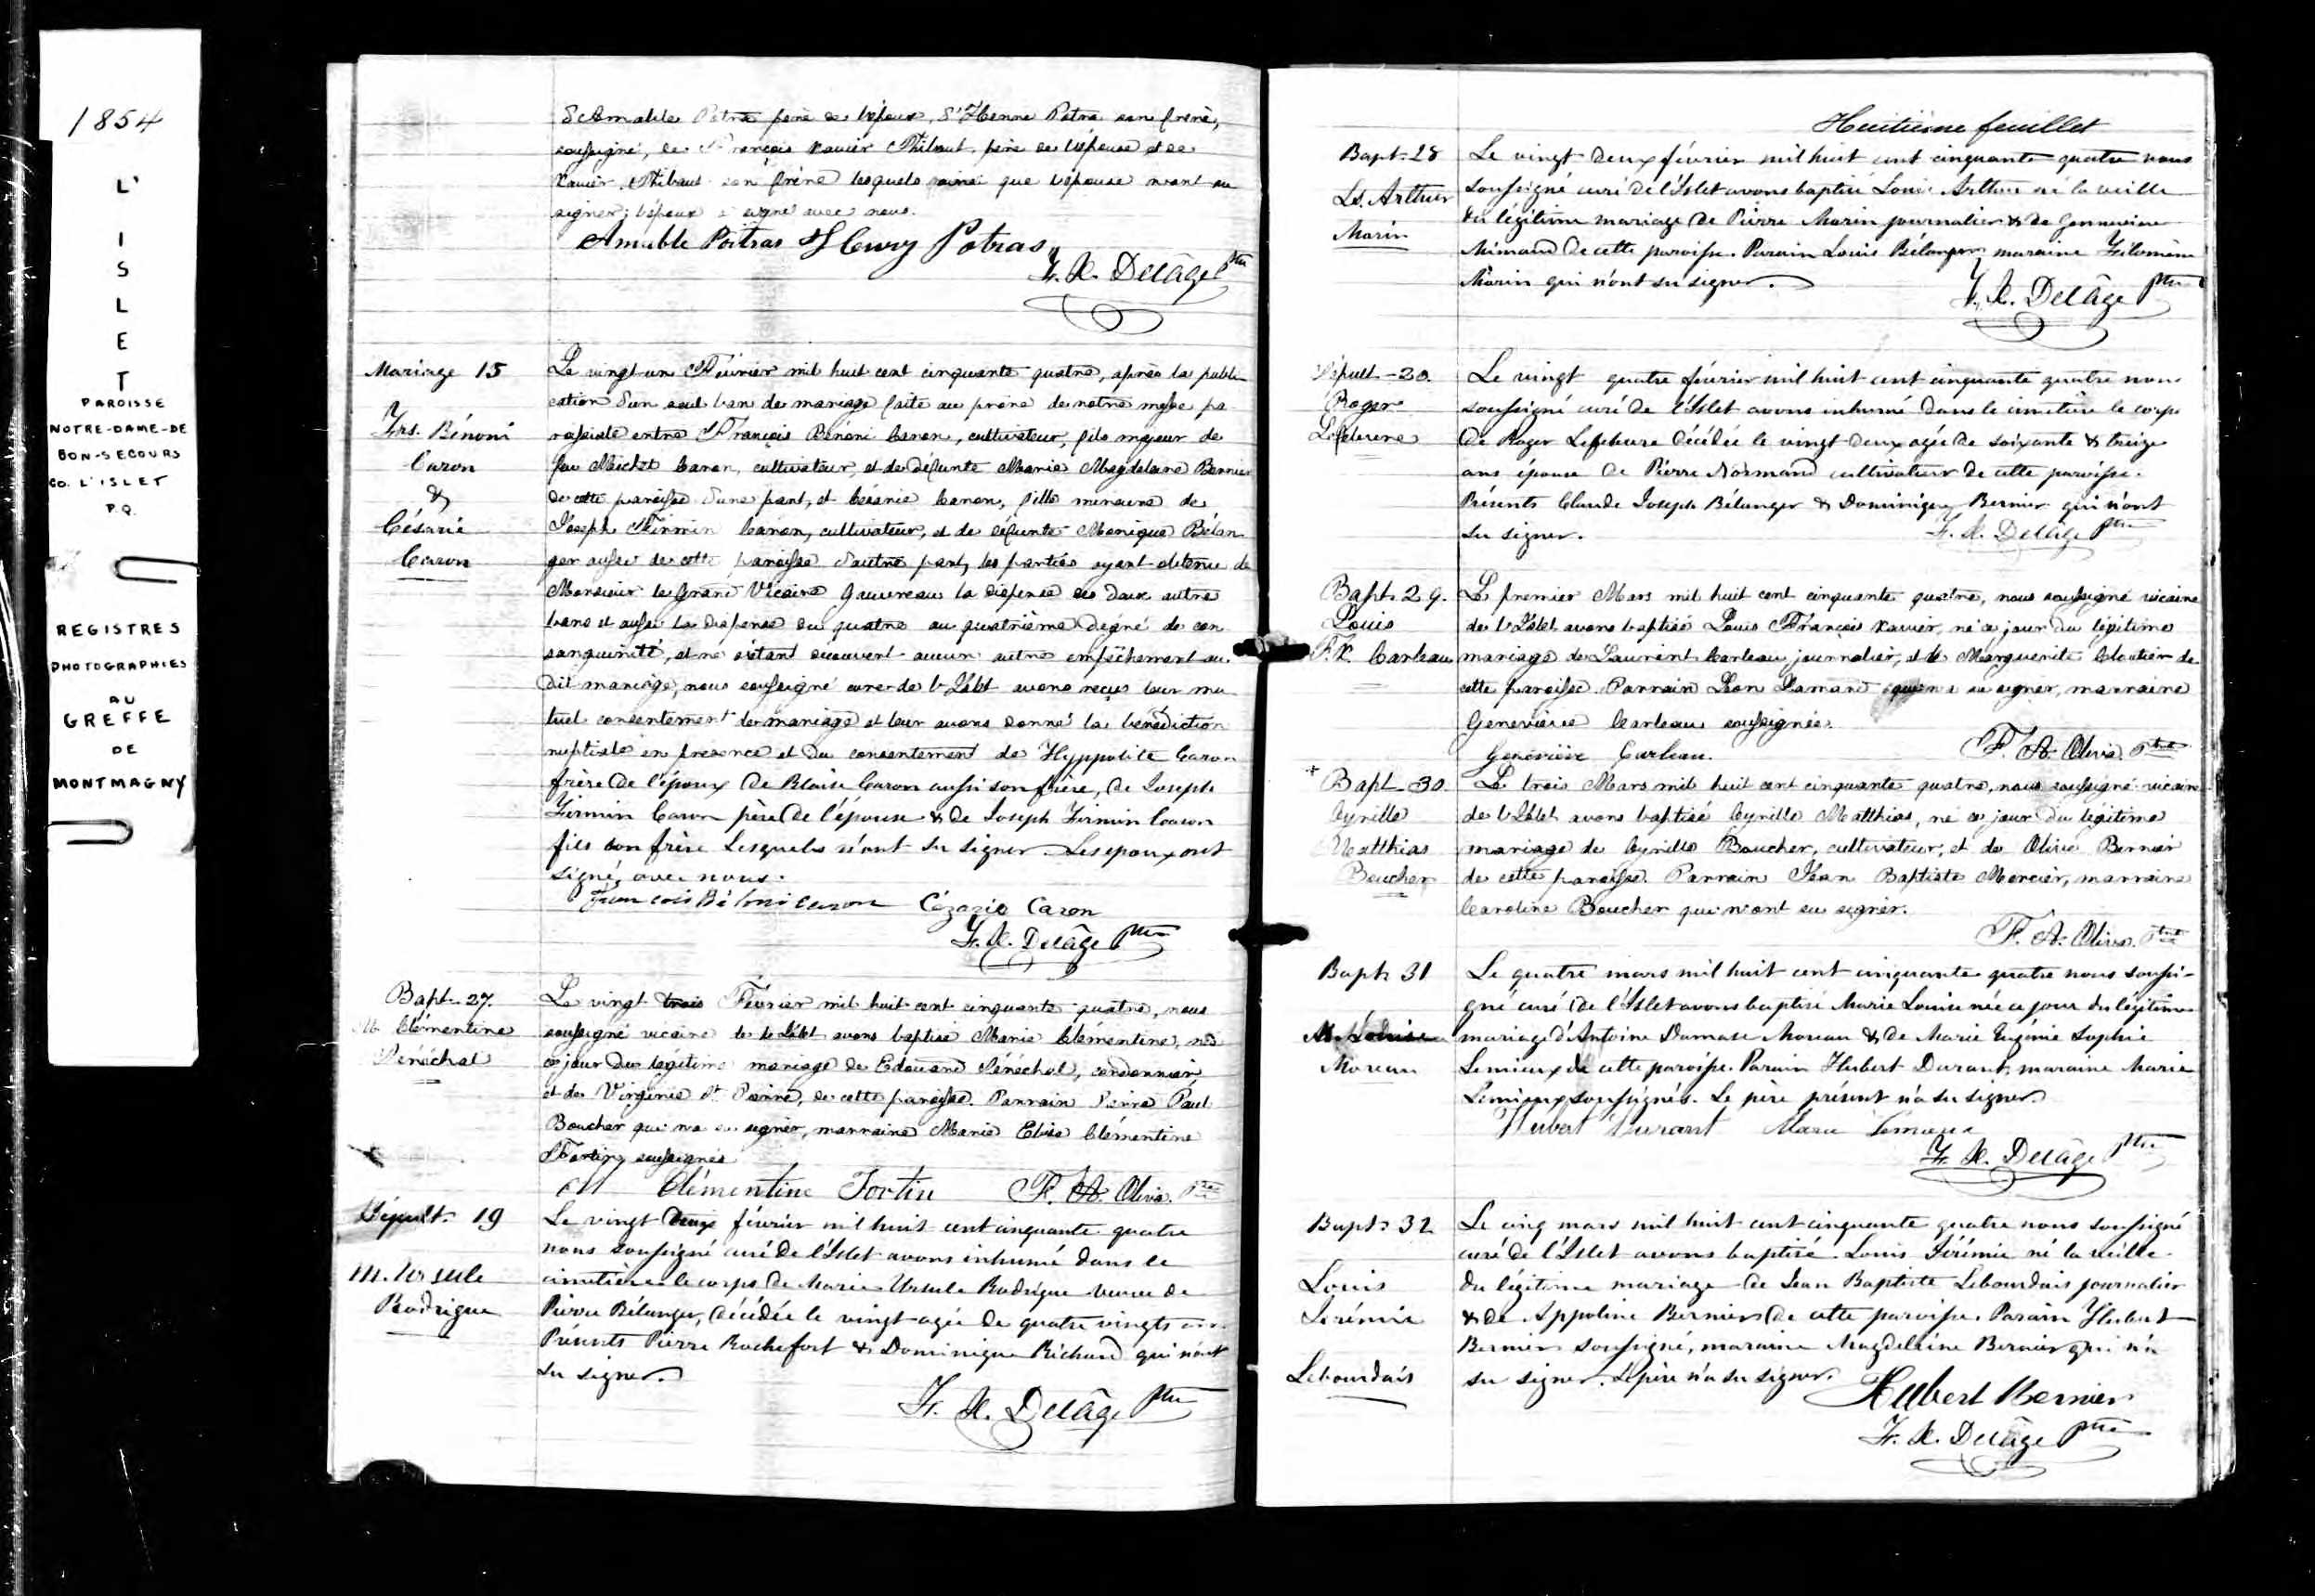 1854
L'
I
S
L
E
T
PAROISSE
NOTRE-DAME-DE
BON-SECOURS
CO. L'ISLET
P.Q.
REGISTRES
PHOTOGRAPHIES
AU
GREFFE
DE
MONTMAGNY
père de l'époux, d'Henri Potra son frère,
soussigné, de François Xavier Thibaut père de l'épouse et de
Xavier Thibaut son frère lesquels ainsi que l'épouse n'ont su
signer; l'époux a signé avec nous.
Amable Poitras Henry Potras
F. X. Delâge Ptre
Mariage 15
Frs. Bénoni
Caron
&
Césarie
Caron
Le vingt-un Février mil huit cent cinquante quatre, après la publi
cation d'un seul ban de mariage faite au prône de notre messe pa
roissiale entre François Bénoni Caron, cultivateur, fils majeur de
feu Michel Caron, cultivateur, et de défunte Marie Magdelaine Bernier
de cette paroisse d'une part, et Césarie Caron, fille mineure de
Joseph Firmin Caron, cultivateur, et de défunte Monique Bélan
ger aussi de cette paroisse d'autre part, les parties ayant obtenu de
Monsieur le Grand Vicaire Gauvreau la dispense des deux autres
bans et aussi la dispense du quatre au quatrième degré de con
sanguinité, et ne s'étant découvert aucun autre empêchement au
dit mariage, nous soussigné curé de l'Islet avons reçus leur mu
tuel consentement de mariage et leur avons donné la bénédiction
nuptiale en présence et du consentement de Hyppolite Caron
frère de l'époux de Blaise Caron aussi son frère, de Joseph
Firmin Caron père de l'épouse & de Joseph Firmin Caron
fils son frère Lesquels n'ont su signer. Les epoux ont
signé avec nous.
François Bénoni caron Cézarie Caron
F. X. Delâge Ptre
Bapt. 27.
M. Clémentine
Sénéchal
Le vingt trois Février mil huit cent cinquante quatre, nous
soussigné vicaire de l'Islet avons baptisé Marie Clémentine, née
ce jour du légitime mariage de Edouard Sénéchal, cordonnier
et de Virginie St Pierre, de cette paroisse. Parrain Pierre Paul
Boucher qui n'a su signer, marraine Marie Elise Clémentine
Fortin soussignée
M Clémentine Fortin F. A. Oliva. Ptre
Sépult. 19
M. Ursule
Rodrigue
Le vingt deux février mil huit cent cinquante quatre
nous soussigné curé de l'Islet avons inhumé dans le
cimetière le corps de Marie Ursule Rodrigue veuve de
Pierre Bélanger, décédée le vingt agée de quatre vingts ans.
Présents Pierre Rochefort & Dominique Richard qui n'ont
su signer.
F. X. Delâge Ptre
Huitième feuillet
Bapt. 28
Ls. Arthur
Morin
Le vingt deux février mil huit cent cinquante quatre nous
soussigné curé de l'Islet avons baptisé Louis Arthur né la veille
du légitime mariage de Pierre Morin journalier & de Geneviève
de cette paroisse. Parain Louis Bélanger maraine Filomène
Morin qui n'ont su signer.
F. X. Delâge Ptre
Sépult. 20.
Roger
Lefebvre
Le vingt quatre février mil huit cent cinquante quatre nous
soussigné curé de l'Islet avons inhumé dans le cimetière le corps
de Roger Lefebvre décédée le vingt-deux agée de soixante & treize
ans épouse de Pierre Normand cultivateur de cette paroisse.
Présents Claude Joseph Bélanger & Dominique Bernier qui n'ont
su signer.
F. X. Delâge Ptre
Bapt. 29.
Louis
F.X. Carbeau
Le premier Mars mil huit cent cinquante quatre, nous soussigné vicaire
de l'Islet avons baptisé Louis François Xavier, né ce jour du légitime
mariage de Laurent Carbeau, journalier, et de Marguerite Cloutier de
cette paroisse. Parrain Léon Lamarre qui n'a su signer, marraine
Geneviève Carbeau soussignée.
Geneviève Carbeau. F. A. Oliva. Ptre
Bapt. 30.
Cyrille
Matthias
Boucher
Le trois Mars mil huit cent cinquante quatre, nous soussigné vicaire
de l'Islet avons baptisé Cyrille Matthias, né ce jour du légitime
mariage de Cyrille Boucher, cultivateur, et de Olive Bernier
de cette paroisse. Parrain Jean Baptiste Mercier, marraine
Caroline Boucher qui n'ont su signer.
F. A. Oliva. Ptre
Bapt. 31
M. Louise
Moreau
Le quatre mars mil huit cent cinquante quatre nous soussi-
gné curé de l'Islet avons baptisé Marie Louise née ce jour du légitime
mariage d'Antoine Damase Moreau & de Marie Eugénie Sophie
Lemieux de cette paroisse. Parain Hubert Durant, maraine Marie
Lemieux soussignés. Le père présent n'a su signer.
Hubert Durant Marie Lemieux
F. X. Delâge Ptre
Bapt. 32
Louis
Jérémie
Lebourdais
Le cinq mars mil huit cent cinquante quatre nous soussigné
curé de l'Islet avons baptisé Louis Jérémie né la veille
du légitime mariage de Jean Baptiste Lebourdais journalier
& de Appoline Bernier de cette paroisse. Parain Hubert
Bernier soussigné, maraine Magdeleine Bernier qui n'a
su signer. Le père n'a su signer.
Hubert Bernier
F. X. Delâge Ptre